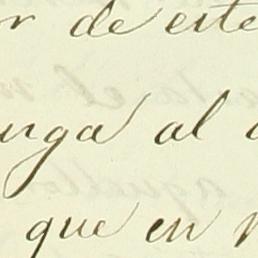 de este
al
que en